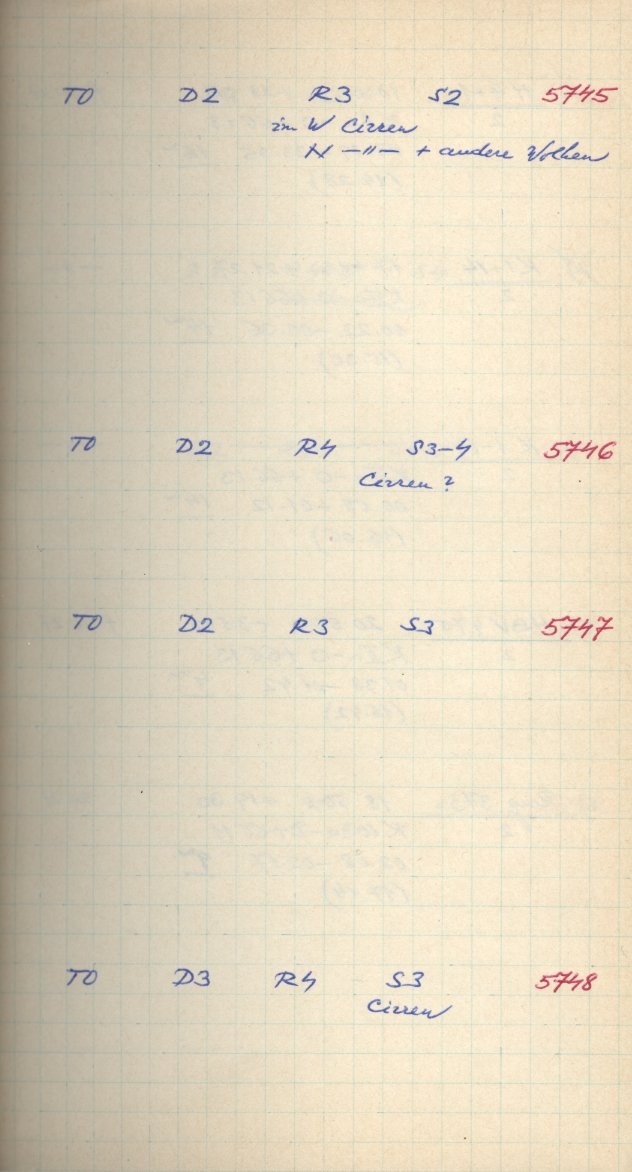 T0 D2 R3 S2 5745
im W Cirren
N —"— + andere Wolken
T0 D2 R4 S3-4 5746
Cirren?
T0 D2 R3 S3 5747
T0 D3 R4 S3 5748
Cirren